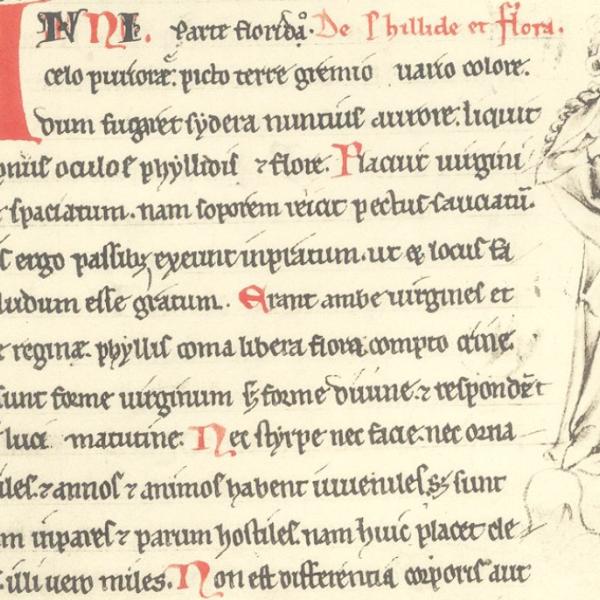 ANNI parte florida. De Phillide et flora.
celo puriore. picto terre gremio uario colore.
dum fugaret sydera nuntius aurore. liquit
omnus oculos phyllidis ⁊ flore. Placuit uirgini
spaciatum. nam soporem reicit pectus sauciatū.
s ergo passibꝫ exeunt in pratum. ut & locus fa
ludum esse gratum. Erant ambe uirgines et
e regine. phyllis coma libera flora compto crine.
sunt forme uirginum sꝫ forme diuine. ⁊ respondēt
luci matutine. Nec styrpe nec facie. nec orna
iles. ⁊ annos ⁊ animos habent iuueniles. sꝫ sunt
m inpares ⁊ parum hostiles. nam huic placet cle
. illi uero miles. Non est differentia corporis aut